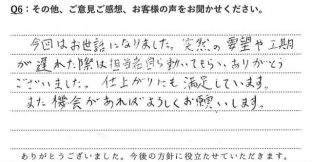 Q6：その他、ご意見ご感想、お客様の声をお聞かせください。
今回はお世話になりました。突然の要望や工期
が遅れた際は担当者自ら動いてもらい、ありがとう
ございました。仕上がりにも満足しています。
また機会があればよろしくお願いします。
ありがとうございました。今後の方針に役立たせていただきます。